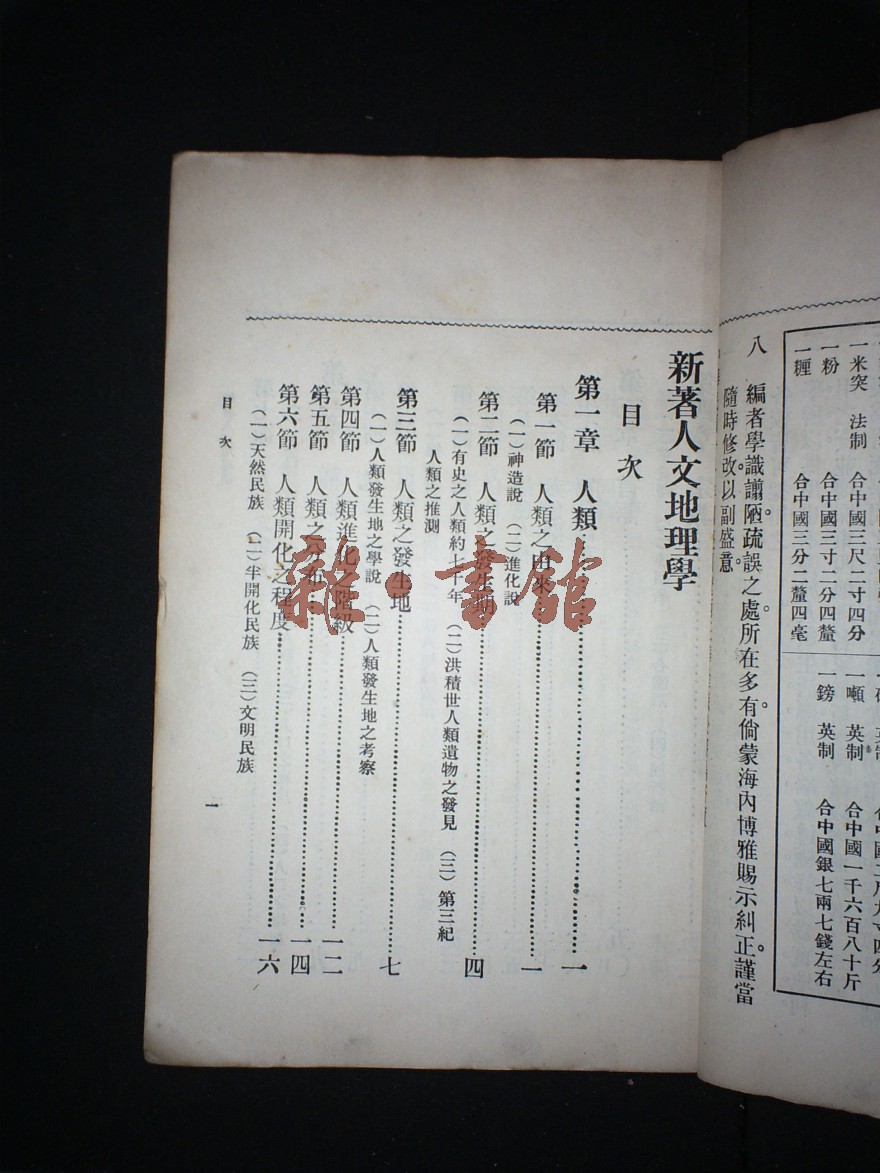 一米突 法制 合中國三尺二寸四分
一粉 合中國三寸二分四釐
一糎 合中國三分二釐四毫
一噸 英制 合中國一千六百八十斤
一鎊 英制 合中國銀七兩七錢左右
八 編者學識譾陋。疏誤之處。所在多有。倘蒙海內博雅賜示糾正。謹當
隨時修改。以副盛意。
新著人文地理學
目次
第一章 人類……一
第一節 人類之由來……一
(一)神造說 (二)進化說
第二節 人類之發生期……四
(一)有史之人類約七千年 (二)洪積世人類遺物之發見 (三)第三紀
人類之推測
第三節 人類之發生地……七
(一)人類發生地之學說 (二)人類發生地之考察
第四節 人類進化之階級……一二
第五節 人類之分布……一四
第六節 人類開化之程度……一六
(一)天然民族 (二)半開化民族 (三)文明民族
目次
一
雜·書館